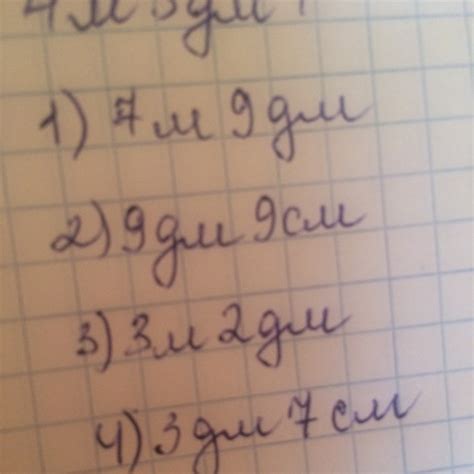 1) 7 м 9 дм
2) 9 дм 9 см
3) 3 м 2 дм
4) 3 дм 7 см